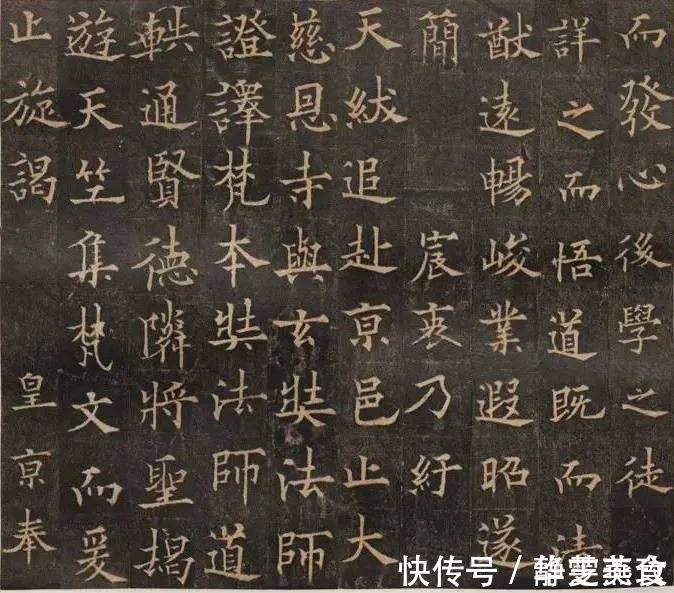 而發心後學之徒
詳之而悟道既而法
猷遠暢峻業遐昭遂
簡 宸衷乃紆
天紱追赴亰邑止大
慈恩寺與玄奘法師
證譯梵本奘法師道
軼通賢德隣將聖搨
遊天竺集梵文而爰
止旋謁 皇亰奉
快传号 /